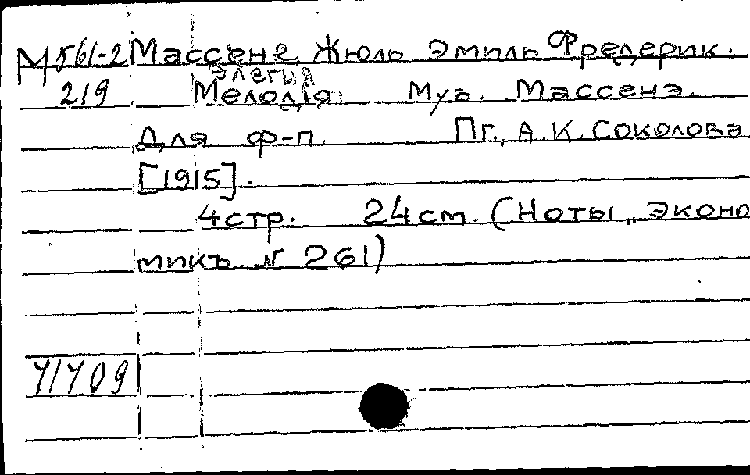 М 561-2 Массенэ Жюль Эмиль Фредерик.
Элегия
219 Мелодія Муз. Массенэ.
Для ф-п. Пг., А.К. Соколова
[1915].
4 стр. 24 см. (Ноты „эконо
микъ N 261)
71709